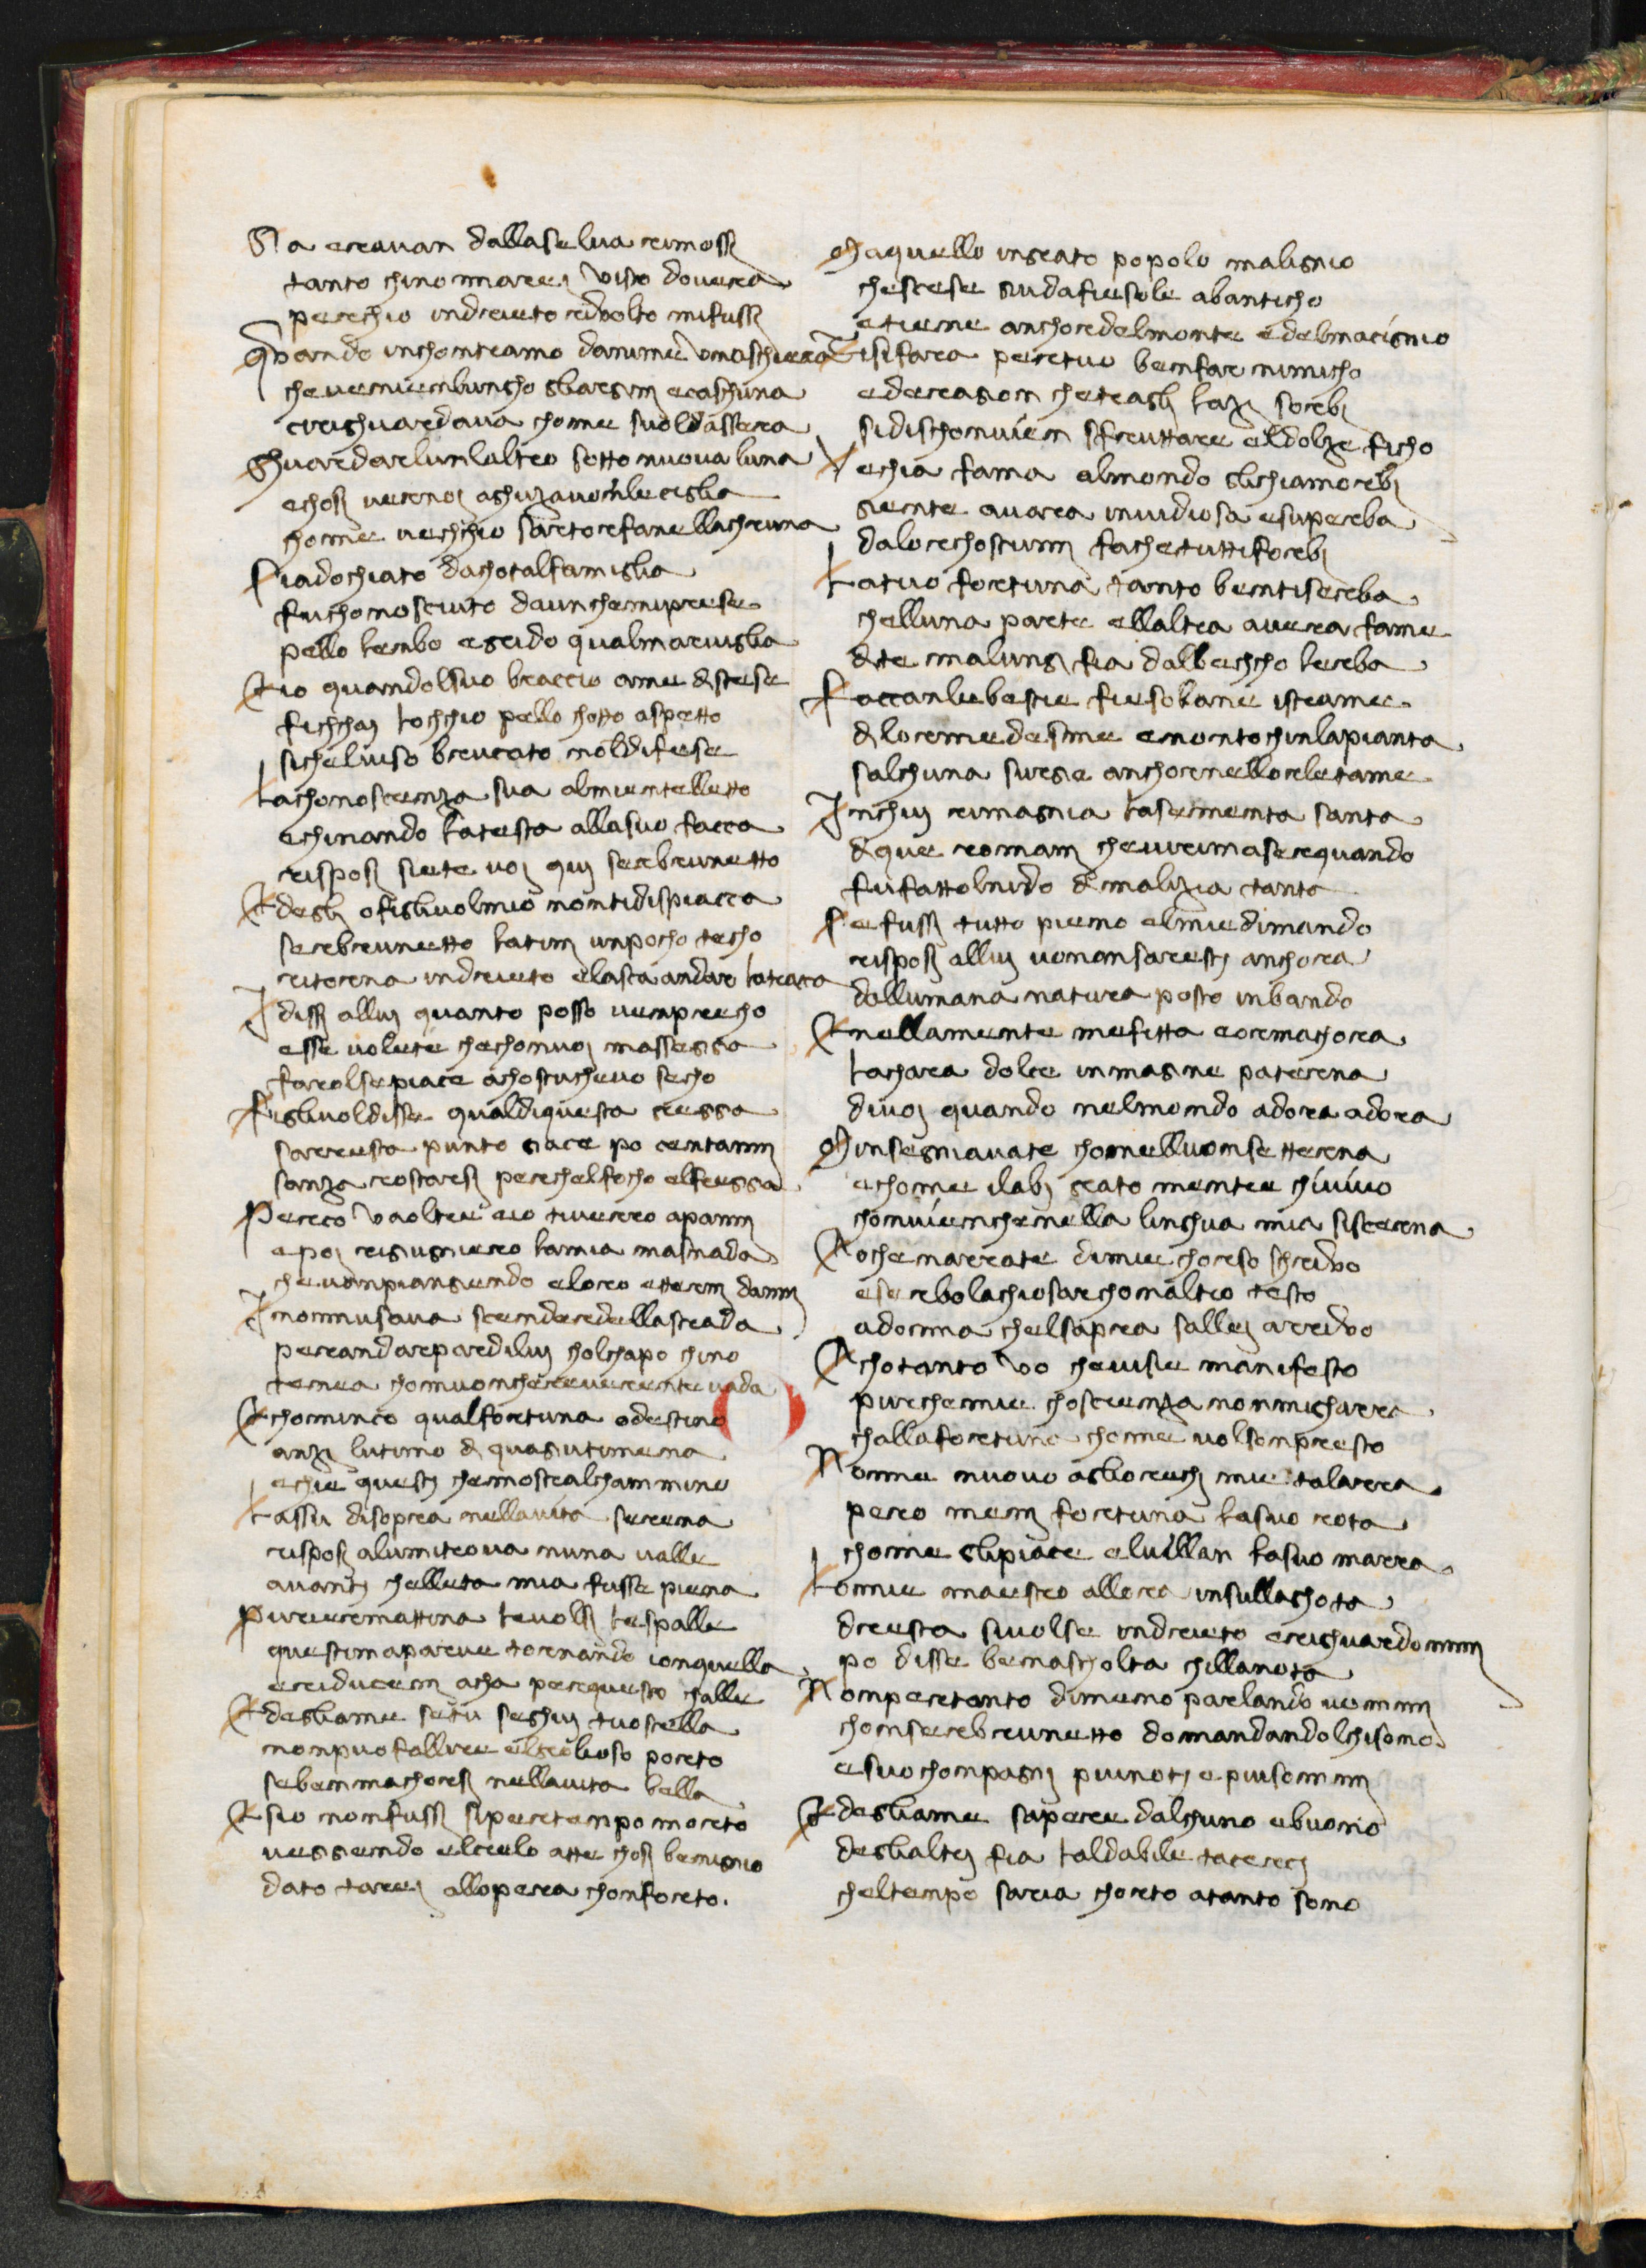 Gia eravan dallaselva rimossi
tanto chinonnarei visto dovera
perchio indrieto rivolto mifussi
Quando inchontramo danime unaschiera
chevenienlungho glargini eciaschuna
ciriguardava chome suoldassera
Ghuardarlunlaltro sotto nuova luna
echosi vernoi aghuzavonleciglia
chome vecchio sartorefanellachruna
Siadochiato dachotalfamiglia
fuchonosciuto dauncheniprese
pello lembo egrido qualmaraviglia
Eio quandolsuo braccio ame distese
fichcai lochchio pello chotto aspetto
sichelviso bruciato noldifese
Lachonoscenza sua almiontelletto
echinando latesta allasuo faccia
risposi siete voi qui serbrunetto
Edegli ofigliuolmio nontidispiaccia
serbrunetto latini unpocho techo
ritorna indrieto elascia andar latraccia
I dissi allui quanto posso venprecho
esse volete chechonvoi masseggia
farolsepiace achostuichevo secho
Figliuoldisse qualdiquesta greggia
sarresta punto giace po centanni
sanza rostarsi perchelfocho elfeggia
Percio vaoltre eio tiverro apanni
epoi rigiugniero lamia masnada
chevanpiangiendo eloro etterni danni
Inonnusava scenderdellastrada
perandarpardilui cholchapo chino
tenea chomuonchereverentevada
Echomincio qualfortuna odestino
anzi lutimo di quagiutimena
echie questi chemostralchammino
Lassu disopra nellavita serena
risposi alumitrova nuna valle
avanti chelleta mia fusse piena
Pureiermattina levolsi lespalle
questimaparve tornando ionquella
eriducemi acha perquesto challe
Edegliame setu seghui tuostella
nonpuofallire elgrolioso porto
sebenmachorsi nellavita bella
Esio nonfussi sipertenpo morto
veggiendo elcielo atte chosi benignio
dato tarei alloperra chonforto.
Maquello ingrato popolo malignio
chescese giudafiesole abanticho
etiene anchordelmonte edelmacignio
Tisifara pertuo benfar nimicho
ederagion chetragli lazi sorbi
sidischonvien sfruttare aldolze ficho
Vechia fama almondo glichiamorbi
giente avara invidiosa esuperba
dalorchostumi fachetuttiforbi
Latuo fortuna tanto bentiserba
chelluna parte ellaltra avera fame
dite malungi fia dalbechcho lerba
Faccianlebestie fiesolane istrame
di lormedesime enontochinlapianta
salchuna surge anchornellorletame
Inchui rimagnia lasementa santa
dique roman chevirimaserquando
fufattolnido di malizia tanta
Se fussi tutto pieno elmiedimando
risposi allui vononsaresti anchora
dallumana natura posto inbando
Enellamente mefitta eormachora
lachara dolce inmagine paterna
divoi quando nelmondo adora adora
Minsegniavate chomelluomsetterna
echome ilabi grato mentre chivivo
chonvienchenella linghua mia siscerna
Coche narrate dimie chorso schrivo
eserbolachiosarchonaltro testo
adonna chelsapra sallei arrivo
Chotanto vo chevisie manifesto
purchemie choscienza nonmigharra
challafortuna chome volsonpresto
Nonne nuovo aglorechi mie talarra
pero meni fortuna lasuo rota
chome glipiace elvillan lasuo marra
Lomie maestro allora insullaghota
dresta sivolse indrieto eriguardommi
po disse benaschota chillanota
Nonpertanto dimeno parlando vommi
chonserbrunetto domandandolchisono
esuochompagni piunoti episommi
Edegliame sapere dalchuno ebuono
deglialtri fia laldabile tacerci
cheltenpo saria chorto atanto sono